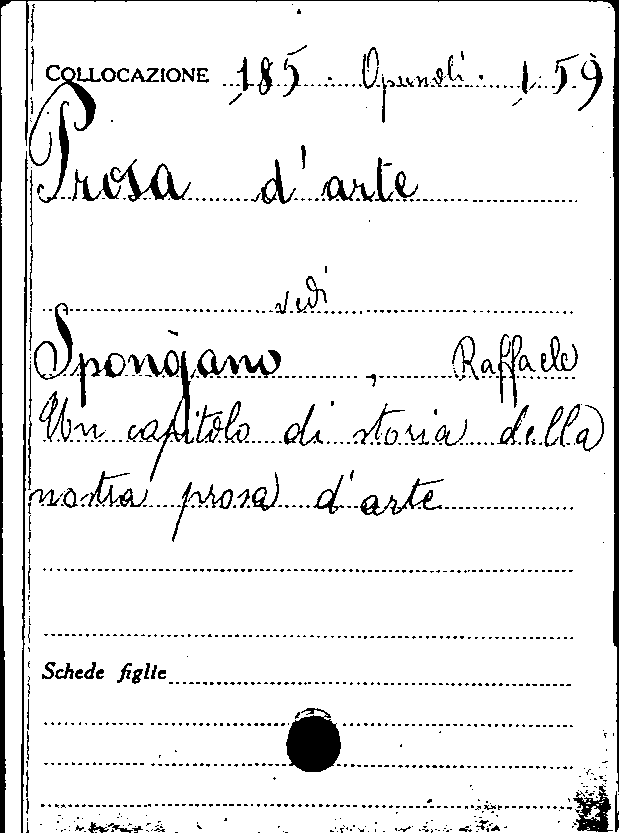 COLLOCAZIONE 185. Opuscoli. 1.59
Prosa d'arte
vedi
Spongano, Raffaele
Un capitolo di storia della
nostra prosa d'arte
Schede figlie